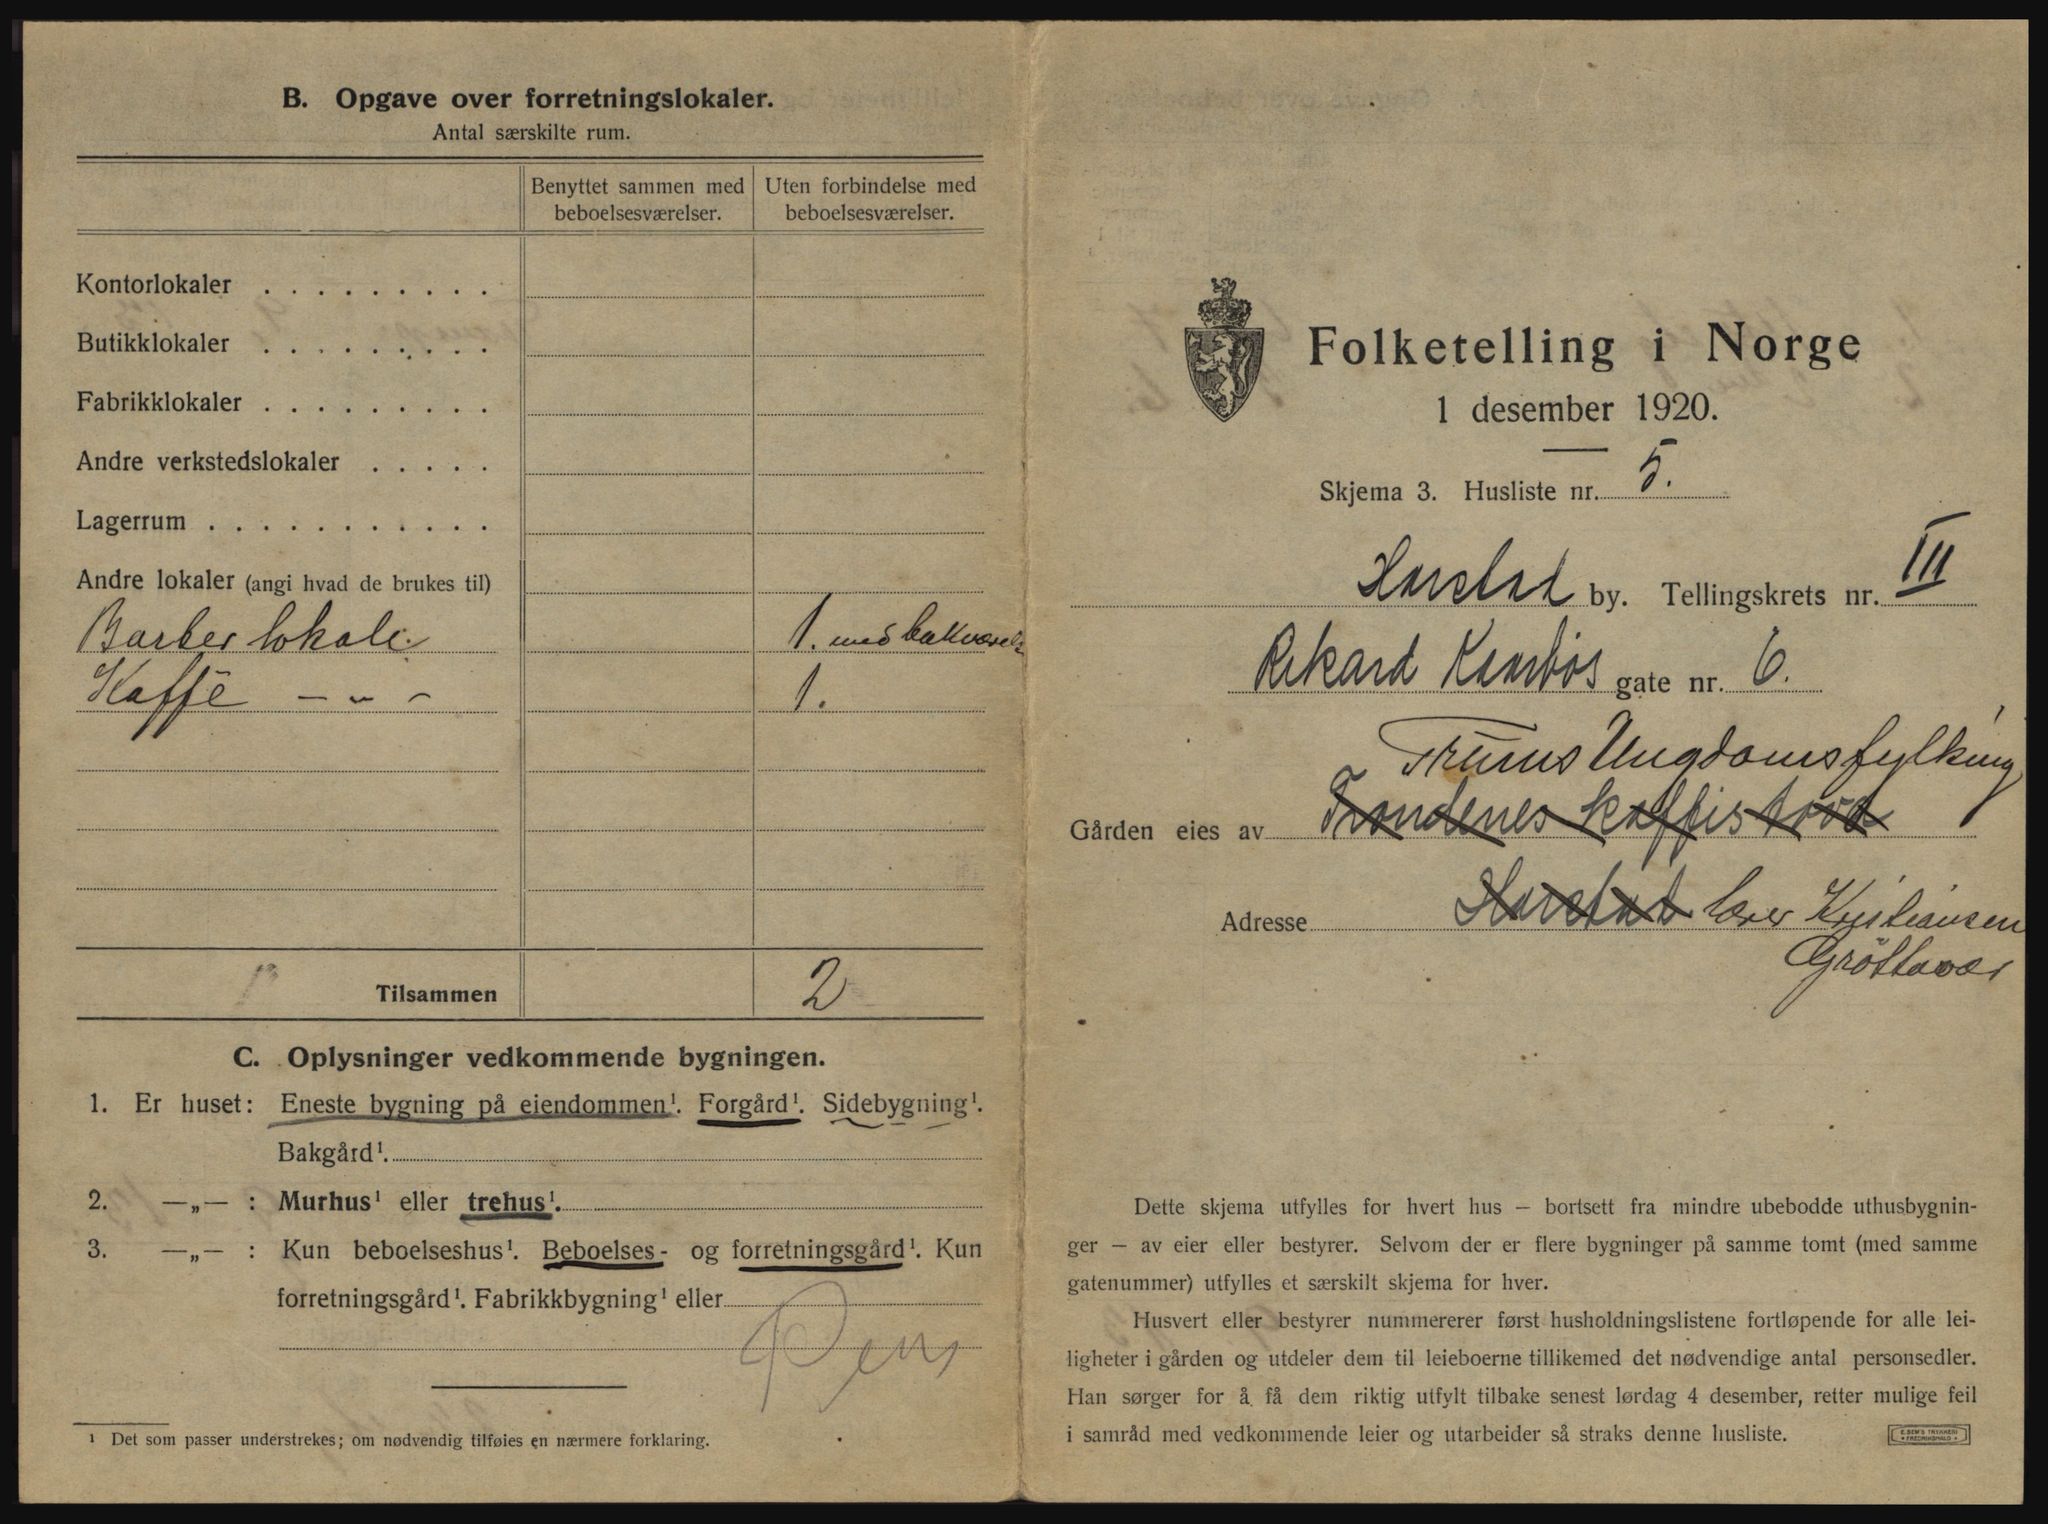 B. Opgave over forretningslokaler.
Antal særskilte rum.
Benyttet sammen med beboelsesværelser.
Uten forbindelse med beboelsesværelser.
Kontorlokaler . . . . . . . . .
Butikklokaler . . . . . . . . .
Fabrikklokaler . . . . . . . . .
Andre verkstedslokaler . . . . .
Lagerrum . . . . . . . . . . . .
Andre lokaler (angi hvad de brukes til)
Barber lokale 1. med bakværelse
Kaffe — " — 1.
Tilsammen 2
C. Oplysninger vedkommende bygningen.
1. Er huset: Eneste bygning på eiendommen¹. Forgård¹. Sidebygning¹.
Bakgård¹.
2. —„— : Murhus¹ eller trehus¹.
3. —„— : Kun beboelseshus¹. Beboelses- og forretningsgård¹. Kun
forretningsgård¹. Fabrikkbygning¹ eller
¹ Det som passer understrekes; om nødvendig tilføies en nærmere forklaring.
Folketelling i Norge
1 desember 1920.
Skjema 3. Husliste nr. 5.
Harstad by. Tellingskrets nr. III
Rikard Kaarbøs gate nr. 6.
Trums Ungdomsfylking
Gården eies av Trondenes kaffistova
Adresse Harstad lærer Kristiansen
Grøttavær
Dette skjema utfylles for hvert hus — bortsett fra mindre ubebodde uthusbygnin-
ger — av eier eller bestyrer. Selvom der er flere bygninger på samme tomt (med samme
gatenummer) utfylles et særskilt skjema for hver.
Husvert eller bestyrer nummererer først husholdningslistene fortløpende for alle lei-
ligheter i gården og utdeler dem til leieboerne tillikemed det nødvendige antal personsedler.
Han sørger for å få dem riktig utfylt tilbake senest lørdag 4 desember, retter mulige feil
i samråd med vedkommende leier og utarbeider så straks denne husliste.
E. SEM'S TRYKKERI
FREDRIKSHALD